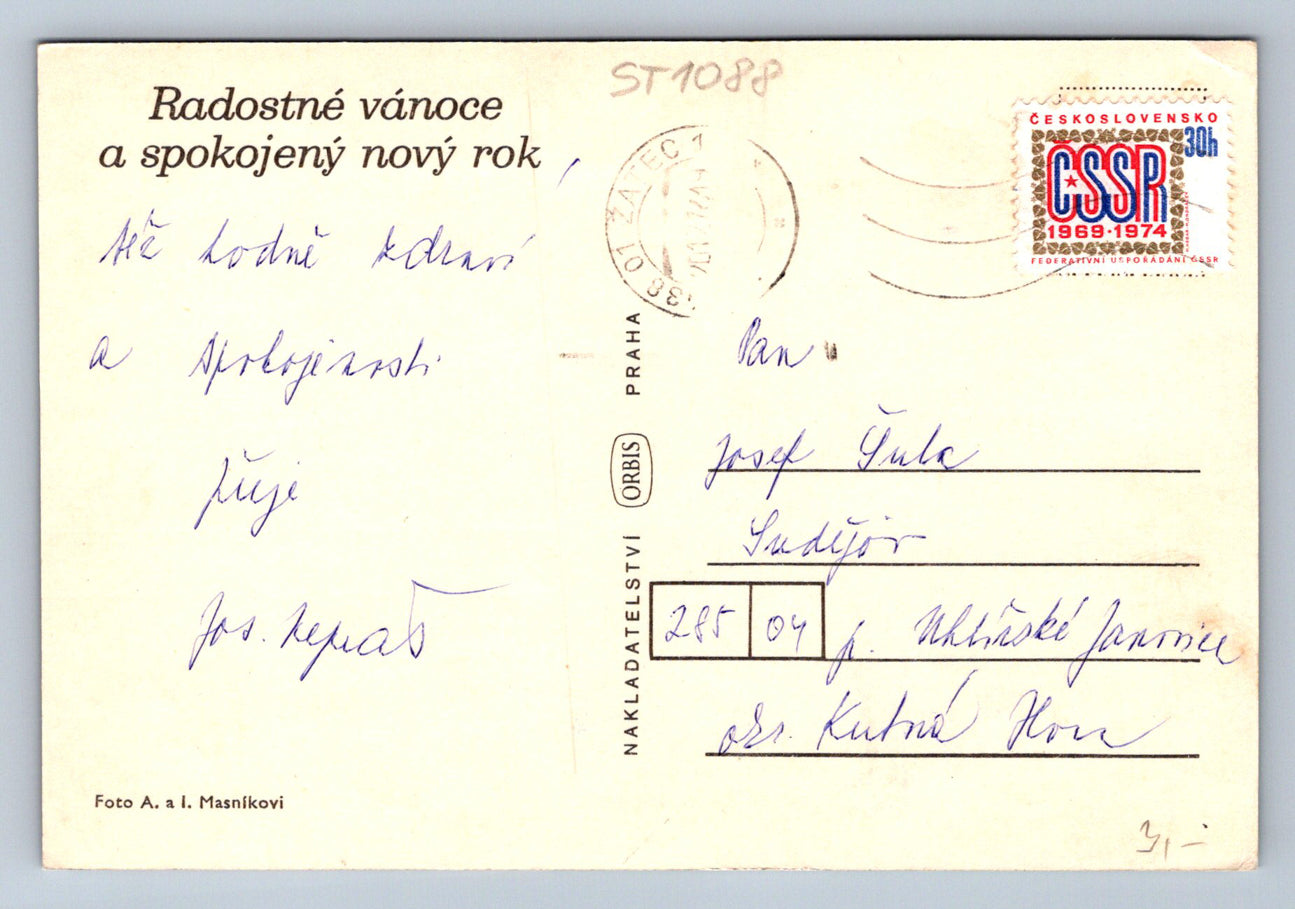 Radostné vánoce
a spokojený nový rok,
též hodně zdraví
a spokojenosti
přeje
Jos.
Foto A. a I. Masníkovi
ST1088
438 01 ŽATEC 1
ČESKOSLOVENSKO
30h
ČSSR
1969·1974
FEDERATIVNÍ USPOŘÁDÁNÍ ČSSR
NAKLADATELSTVÍ ORBIS PRAHA
Pan
Josef Šulc
Sudějov
285 04 p. Uhlířské Janovice
okr. Kutná Hora
3,-